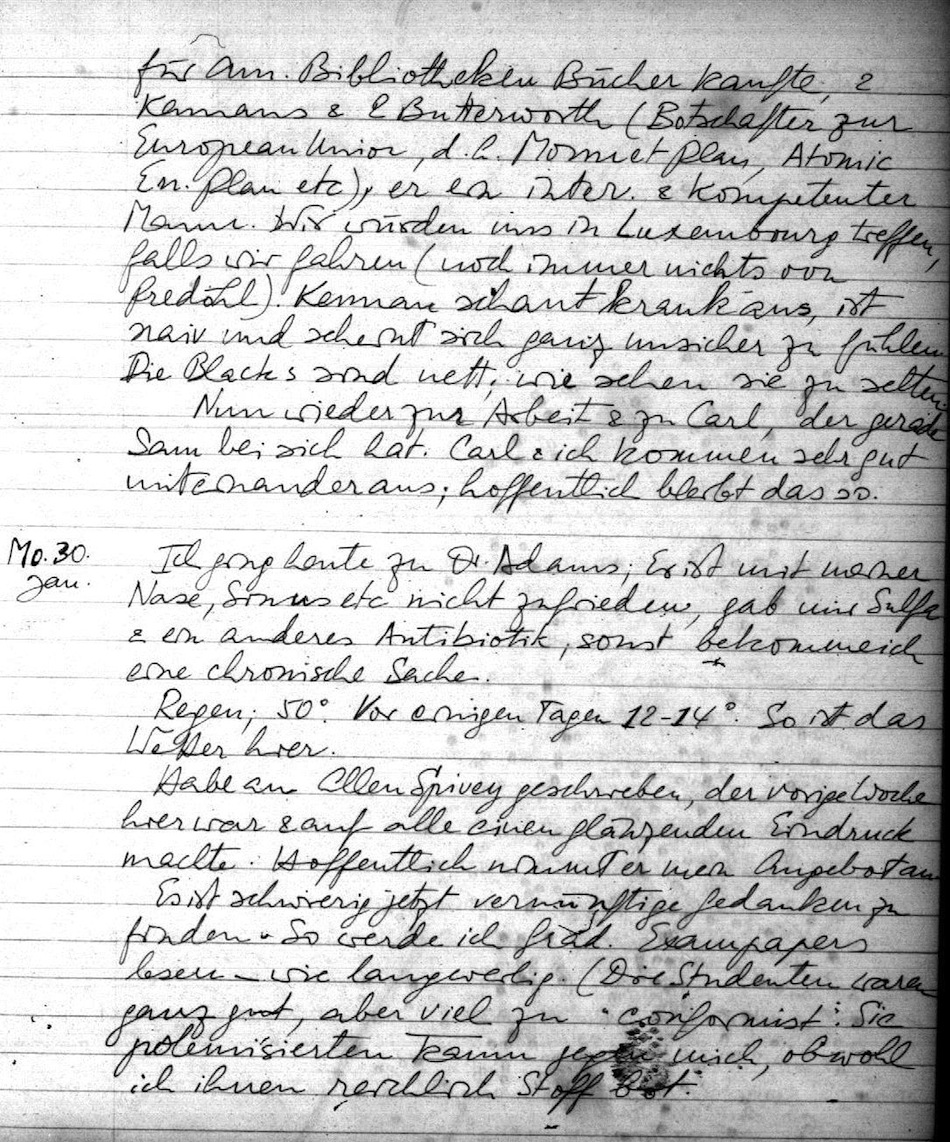 für Am. Bibliotheken Bücher kaufte, &
Kennans & & Butterworth (Botschafter zur
European Union, d.h. Monnet Plan, Atomic
En. Plan etc), er ein inter. & kompetenter
Mann. Wir würden uns in Luxembourg treffen,
falls wir fahren (noch immer nichts von
Predöhl). Kennan schaut krank aus, ist
naiv und scheint sich ganz unsicher zu fühlen.
Die Blacks sind nett; wir sehen sie zu selten.
Nun wieder zur Arbeit & zu Carl, der gerade
Sam bei sich hat. Carl & ich kommen sehr gut
miteinander aus; hoffentlich bleibt das so.
Mo. 30. Jan.
Ich ging heute zu Dr. Adams; Er ist mit meiner
Nase, Sinus etc nicht zufrieden, gab mir Sulfa
& ein anderes Antibiotik, sonst bekomme ich
eine chronische Sache.
Regen; 50°. Vor einigen Tagen 12-14°. So ist das
Wetter hier.
Habe an Allen Spivey geschrieben, der vorige Woche
hier war & auf alle einen glänzenden Eindruck
machte. Hoffentlich nimmt er mein Angebot an
Es ist schwierig jetzt vernünftige Gedanken zu
finden. So werde ich Grad. Exampapers
lesen – wie langweilig. (Die Studenten waren
ganz gut, aber viel zu "conformist". Sie
polemisierten kaum gegen mich, obwohl
ich ihnen reichlich Stoff bot.